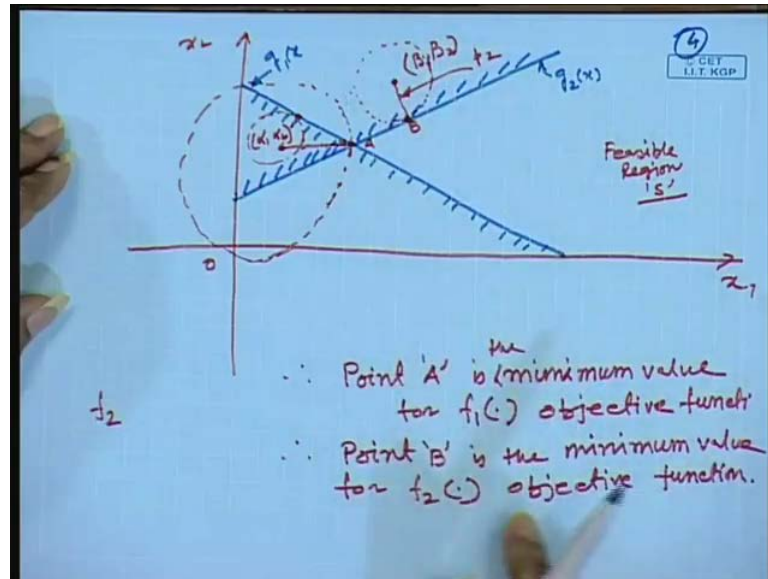 4
© CET
I.I.T. KGP
x₂
g₁x
(β₁β₂)
f₂
g₂(x)
(α₁α₂)
A
B
Feasible
Region
'S'
O
x₁
the
∴ Point 'A' is (mimimum value
for f₁(·) objective functi
f₂
∴ Point 'B' is the minimum value
for f₂(·) objective function.